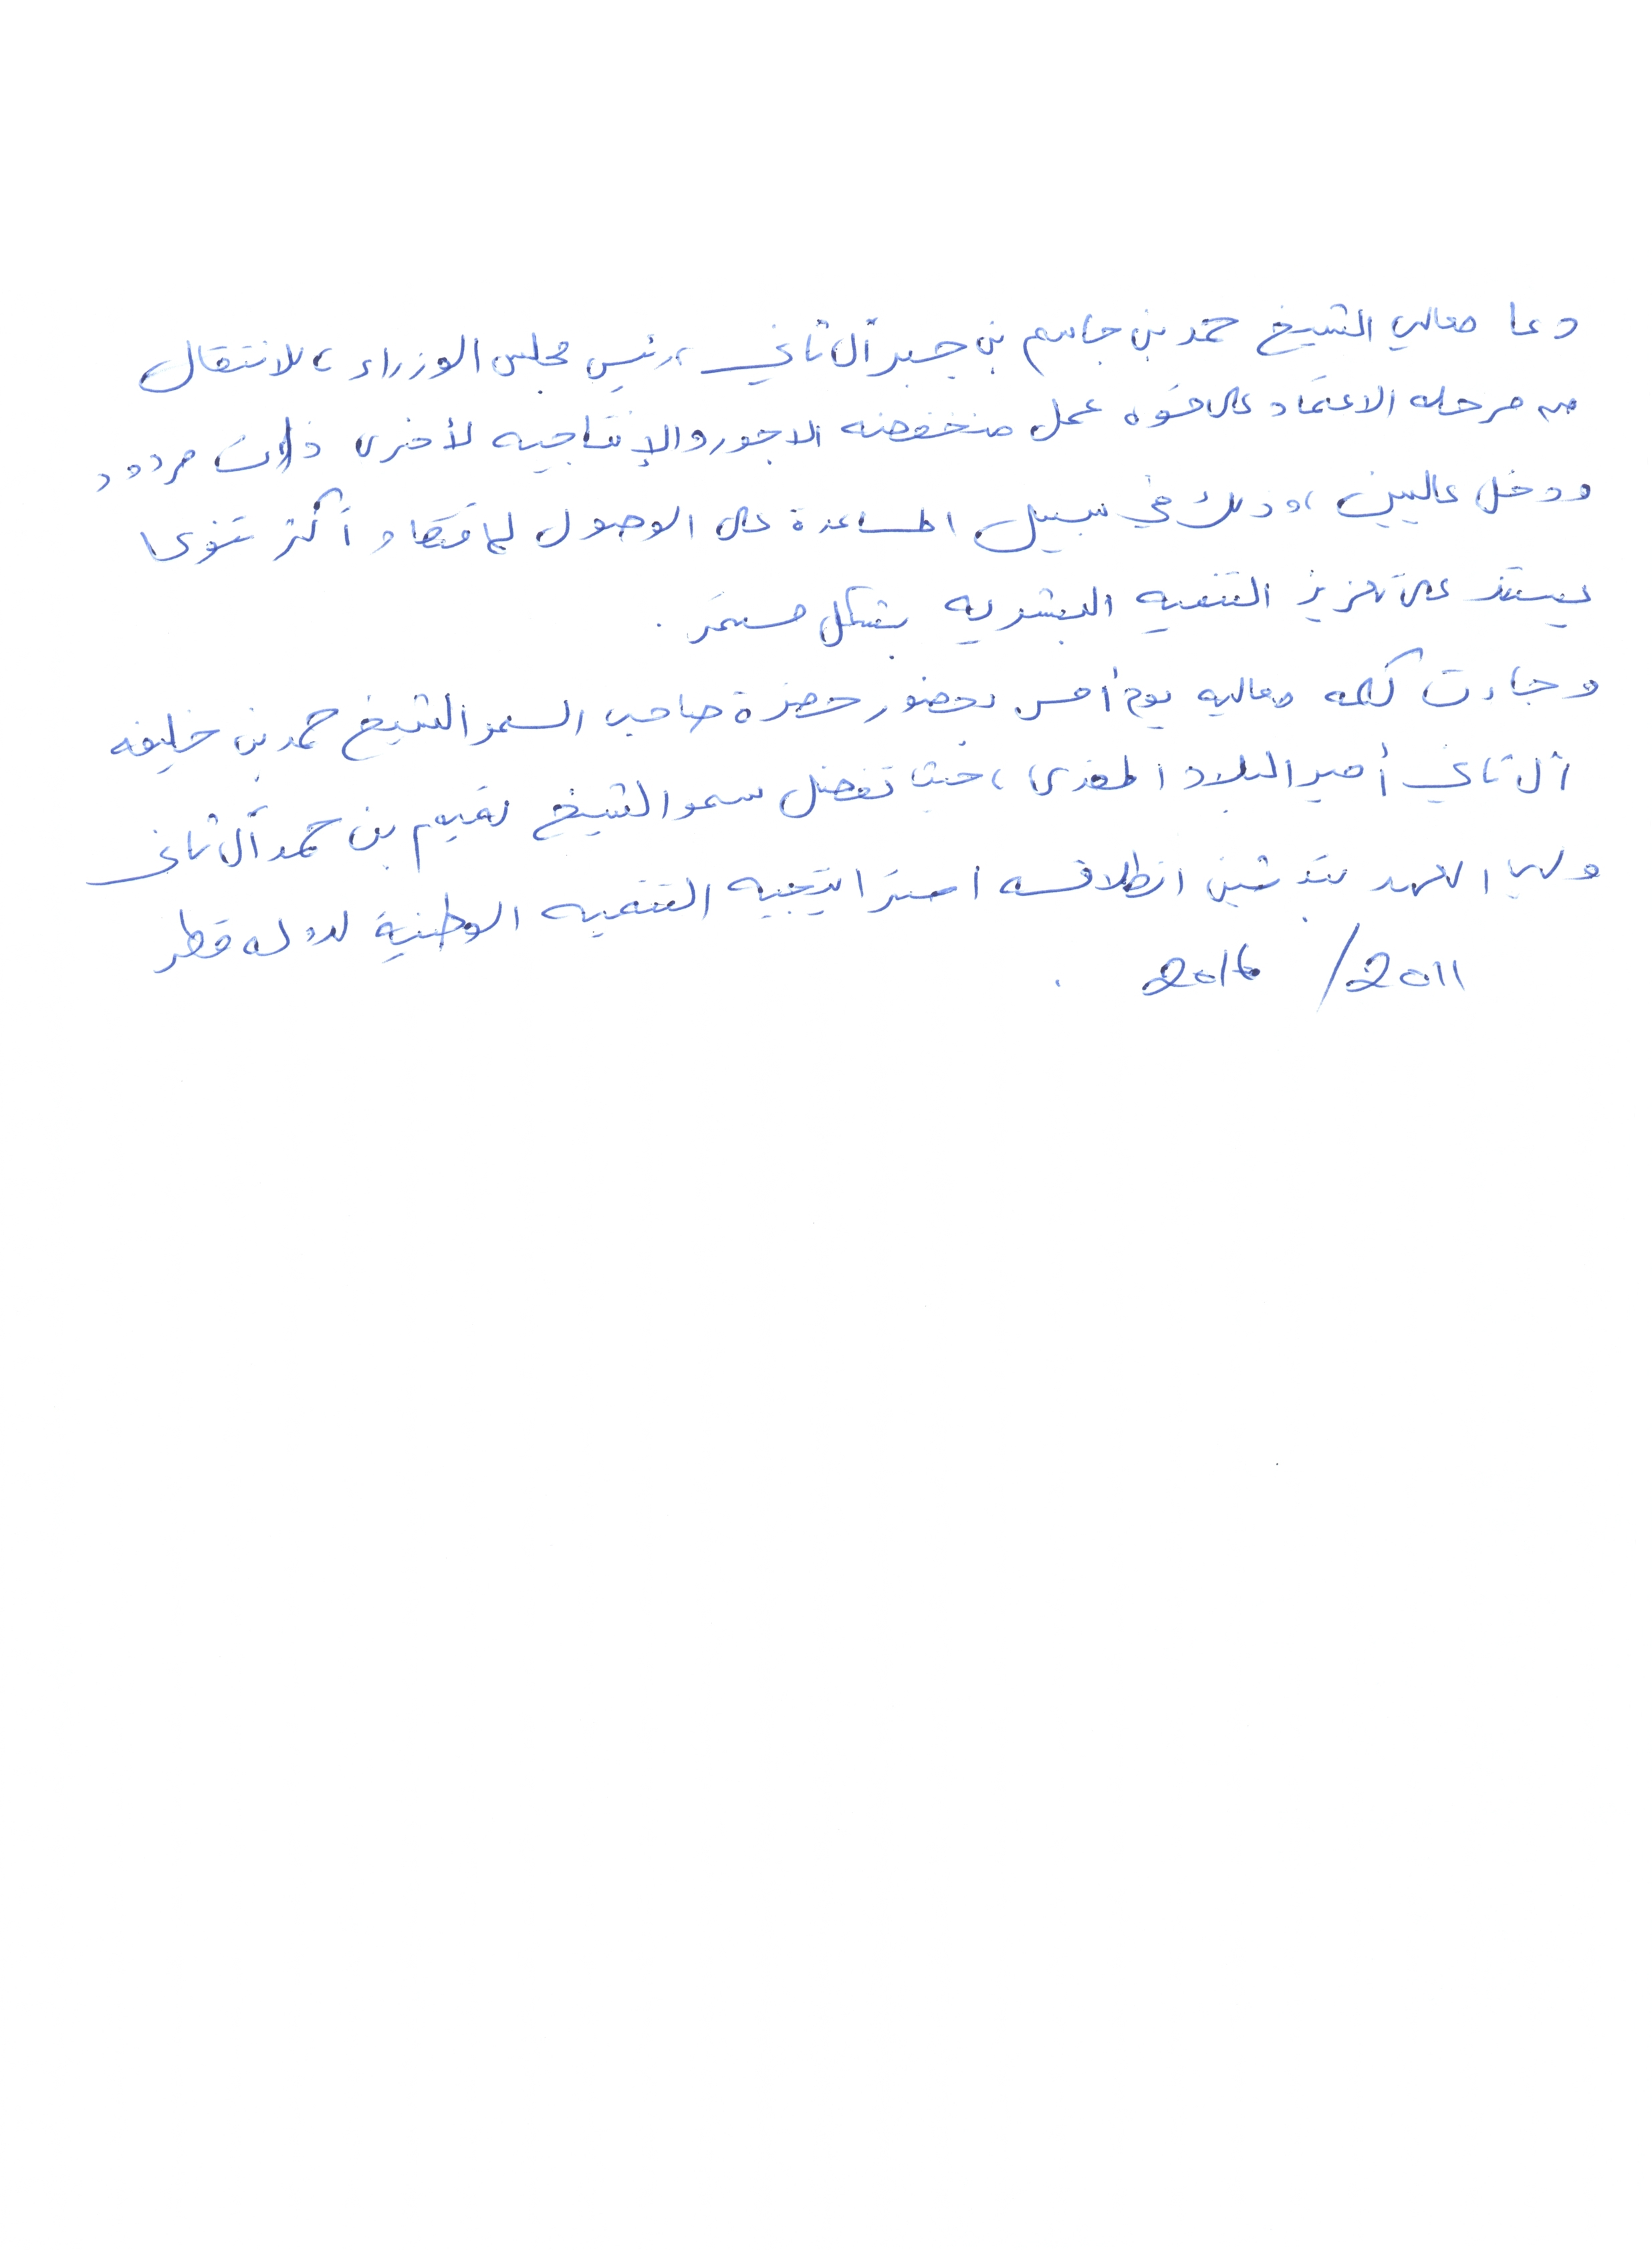 دعا معالي الشيخ حمد بن جاسم بن جبر آل ثاني، رئيس مجلس الوزراء، للانتقال
من مرحله الاعتماد على قوه عمل منخفضه الاجور والإنتاجيه لأخرى ذات مردود
ودخل عاليين، وذلك في سبيل المساعدة على الوصول لاقتصاد أكثر تنوعا
يستند على تعزيز التنميه البشريه بشكل مستمر.
وجاءت كلمه معاليه يوم أمس بحضور حضرة صاحب السمو الشيخ حمد بن خليفه
آل ثاني أمير البلاد المفدى، حيث تفضل سمو الشيخ تميم بن حمد آل ثاني
ولي العهد بتدشين انطلاقه استراتيجيه التنميه الوطنية لدوله قطر
2011/ 2016 .